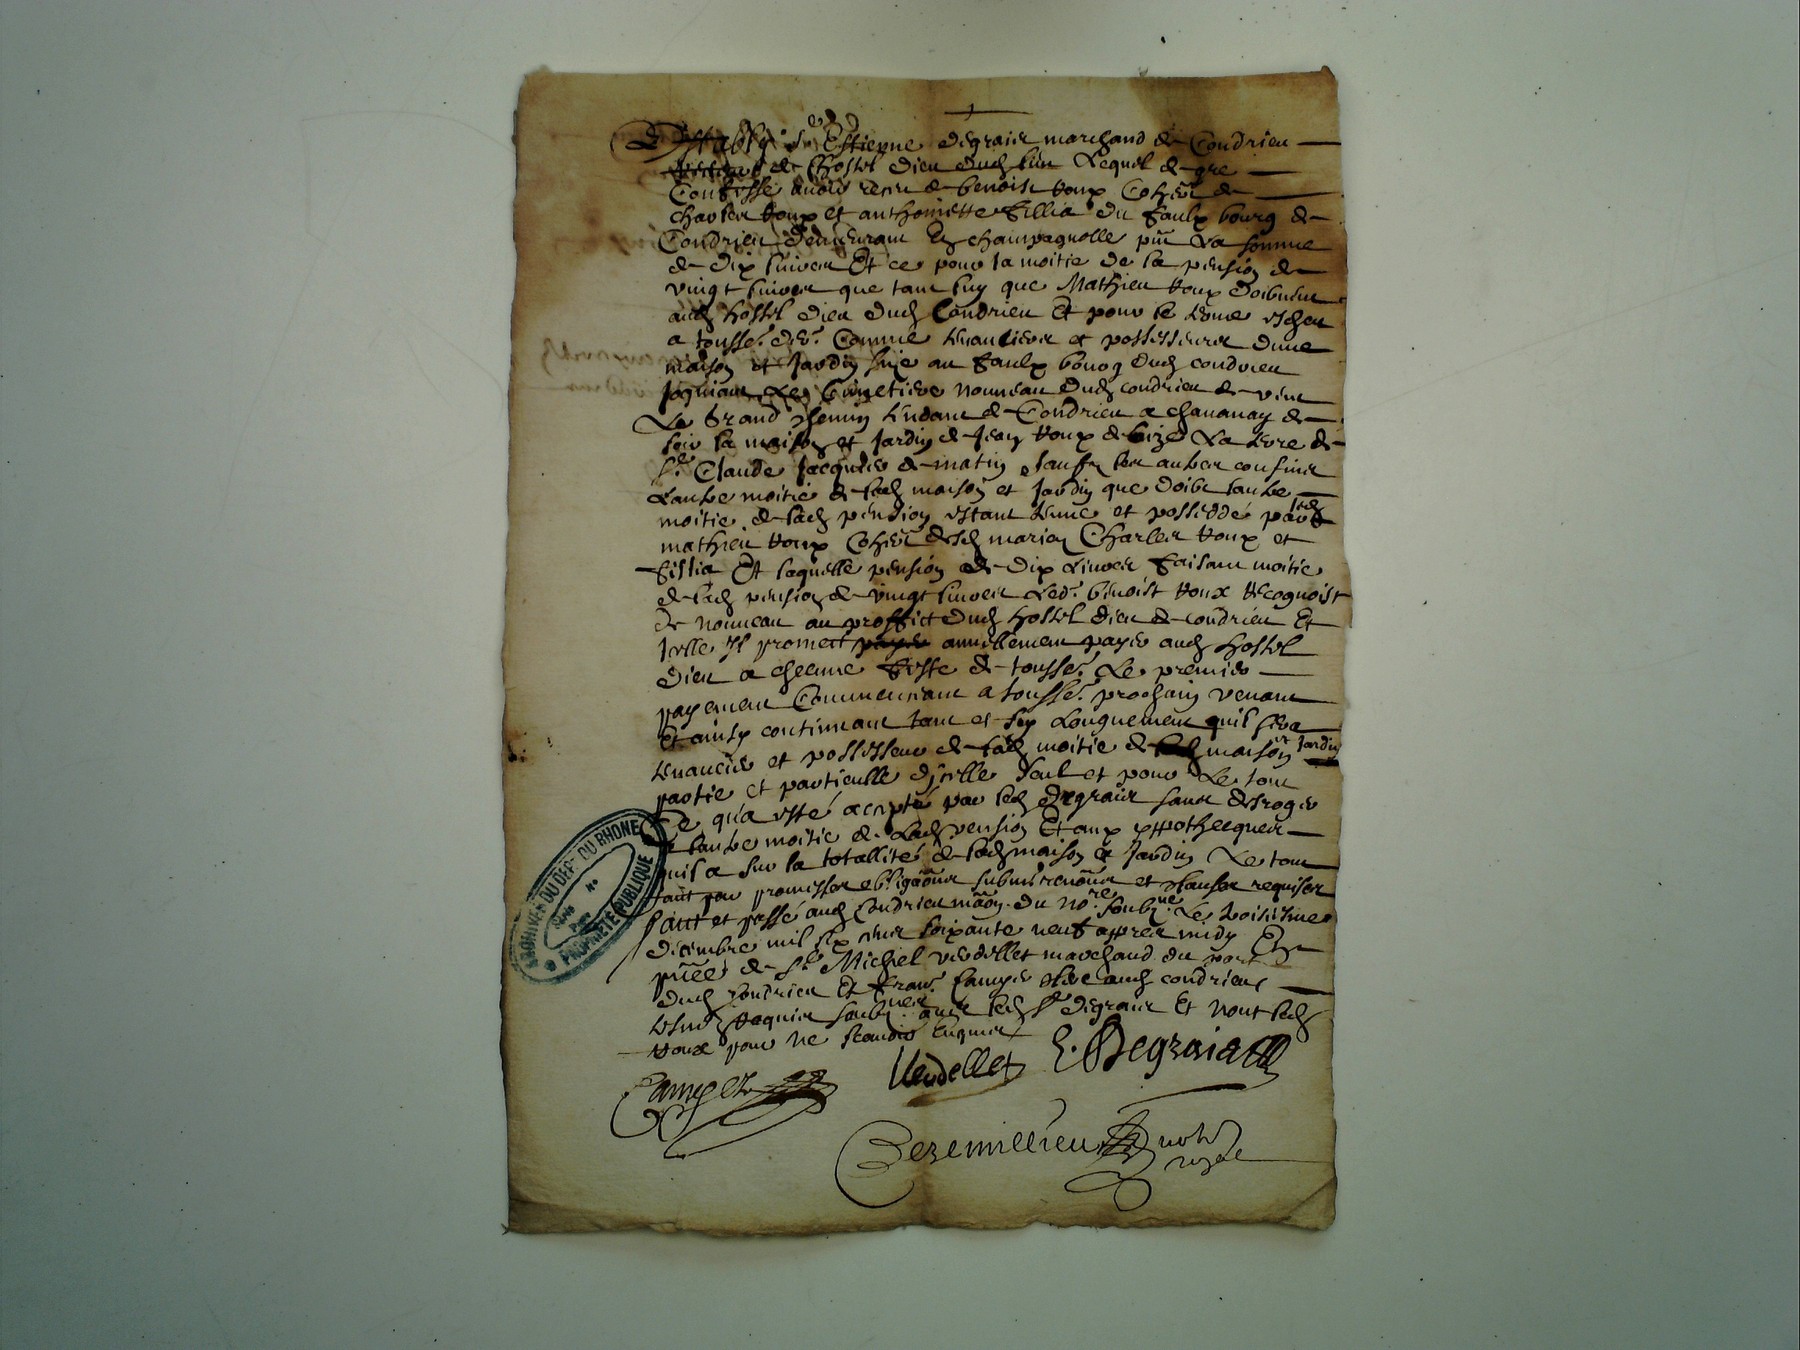 Estably Sr Estienne degrais marchand de Condrieu
de lhostel dieu dud lieu Lequel de gre
Confesse avoir receu de benoist Roux Coher de
charles Roux et anthoinette fillia du faulx bourg de
Condrieu demeurant En champagnolle pnt La somme
de dix livres Et ce pour la moitie de la pension de
vingt livres que tant luy que Mathieu Roux doibvent
aud hostel dieu dud Condrieu Et pour le terme escheu
a touss. der. Comme tenanciers et possesseurs dune
maison et Jardin size au faulx bourg dud condrieu
Joignant Le Cimetiere nouveau dud condrieu de vent
Le Grand chemin tendant de Condrieu a chavanay de
soir la maison et Jardin de Jean Roux de bize La terre de
Sr Claude Jacquier de matin sauf ses autres confins
Lautre moitie de lad maison et Jardin que doibt lautre
moitie de lad pension estant tenue et possedde par led
mathieu Roux Coher desd maries Charles Roux et
fillia Et laquelle pension de dix Livres faisant moitie
de lad pension de vingt livres Led. benoist Roux Recognoist
de nouveau au proffict dud hostel dieu de condrieu Et
Icelle Il promect annuellement payer aud hostel
dieu a checune feste de touss. Le premier
payement Commencant a touss. prochain venant
Et ainsy continuant tant et sy Longuement quil sera
tenancier et possesseur de lad moitie de maison et Jardin
partie et partieulle dicelle seul et pour Le tout
Ce qua esté accepté par led degrais sans desroger
a lautre moitie de Lad pension Et aux yppothecques
quil a sur la totallité de lad maison et Jardin Le tout
faict par promesses obligaons submis renons et clauses requises
faict et passé aud Condrieu maon du nore soubzne Le troisiesme
decembre mil six cens soixante neuf appres midy En
pnce de Sr Michiel verdellet marchand du port
dud condrieu Et fran. Campet clerc aud condrieu
tesmoins Requis soubznes avec led Sr degrais Et non led
Roux pour ne scavoir Enquis
Campet Verdellet E. Degrais
Bezemillieu nore
royal
ARCHIVES DU DEPT DU RHONE
PROPRIÉTÉ PUBLIQUE